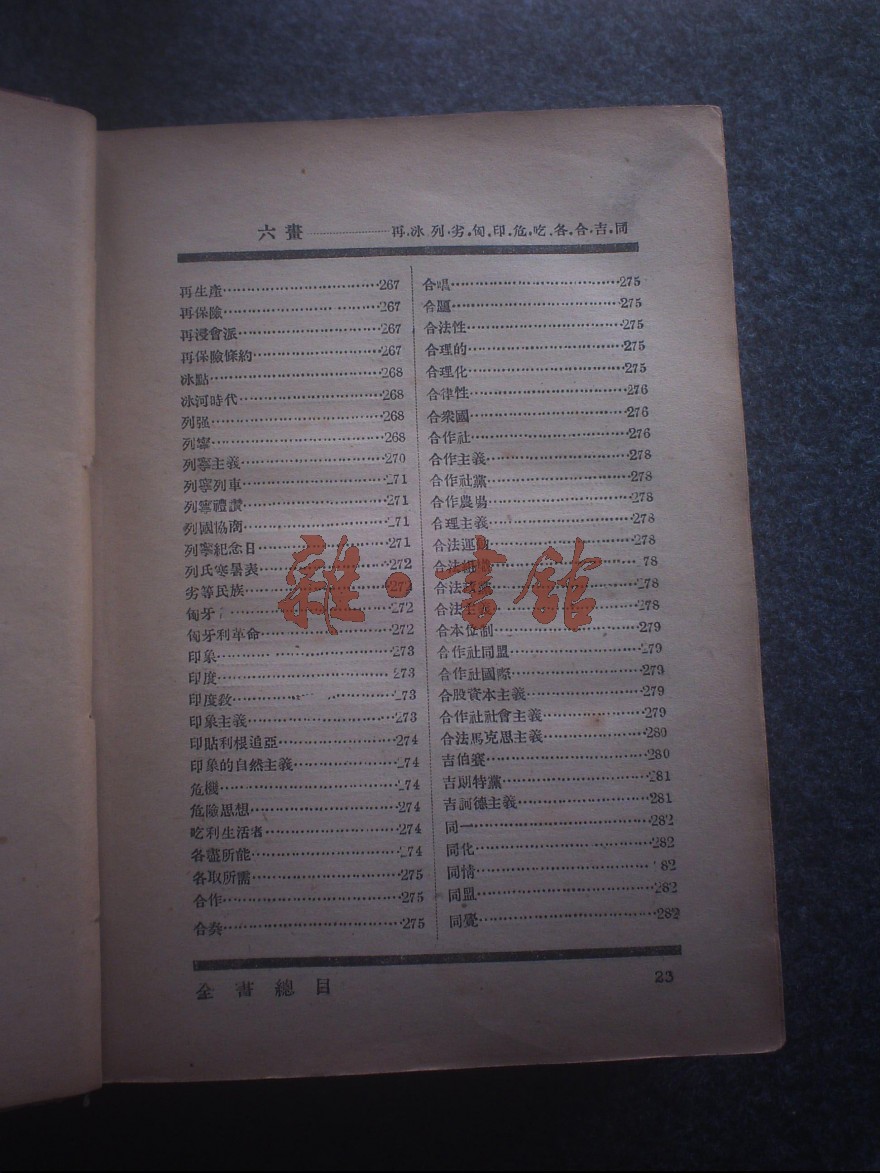 六畫………再.冰.列.劣.匈.印.危.吃.各.合.吉.同
再生產………267
再保險………267
再浸會派………267
再保險條約………267
冰點………268
冰河時代………268
列强………268
列寧………268
列寧主義………270
列寧列車………271
列寧禮讚………271
列國協商………271
列寧紀念日………271
列氏寒暑表………272
劣等民族………272
匈牙………272
匈牙利革命………272
印象………273
印度………273
印度教………73
印象主義………273
印貼利根追亞………274
印象的自然主義………74
危機………74
危險思想………274
吃利生活者………274
各盡所能………74
各取所需………275
合作………275
合奏………275
合唱………275
合盟………275
合法性………275
合理的………275
合理化………275
合律性………276
合衆國………276
合作社………276
合作主義………278
合作社黨………278
合作農場………278
合理主義………278
合法運動………278
合法………78
合法………78
合法主義………278
合本位制………279
合作社同盟………79
合作社國際………279
合股資本主義………279
合作社社會主義………279
合法馬克思主義………280
吉伯賽………280
吉斯特黨………281
吉訶德主義………281
同一………282
同化………282
同情………82
同盟………282
同覺………282
全書總目
23
雜·書館